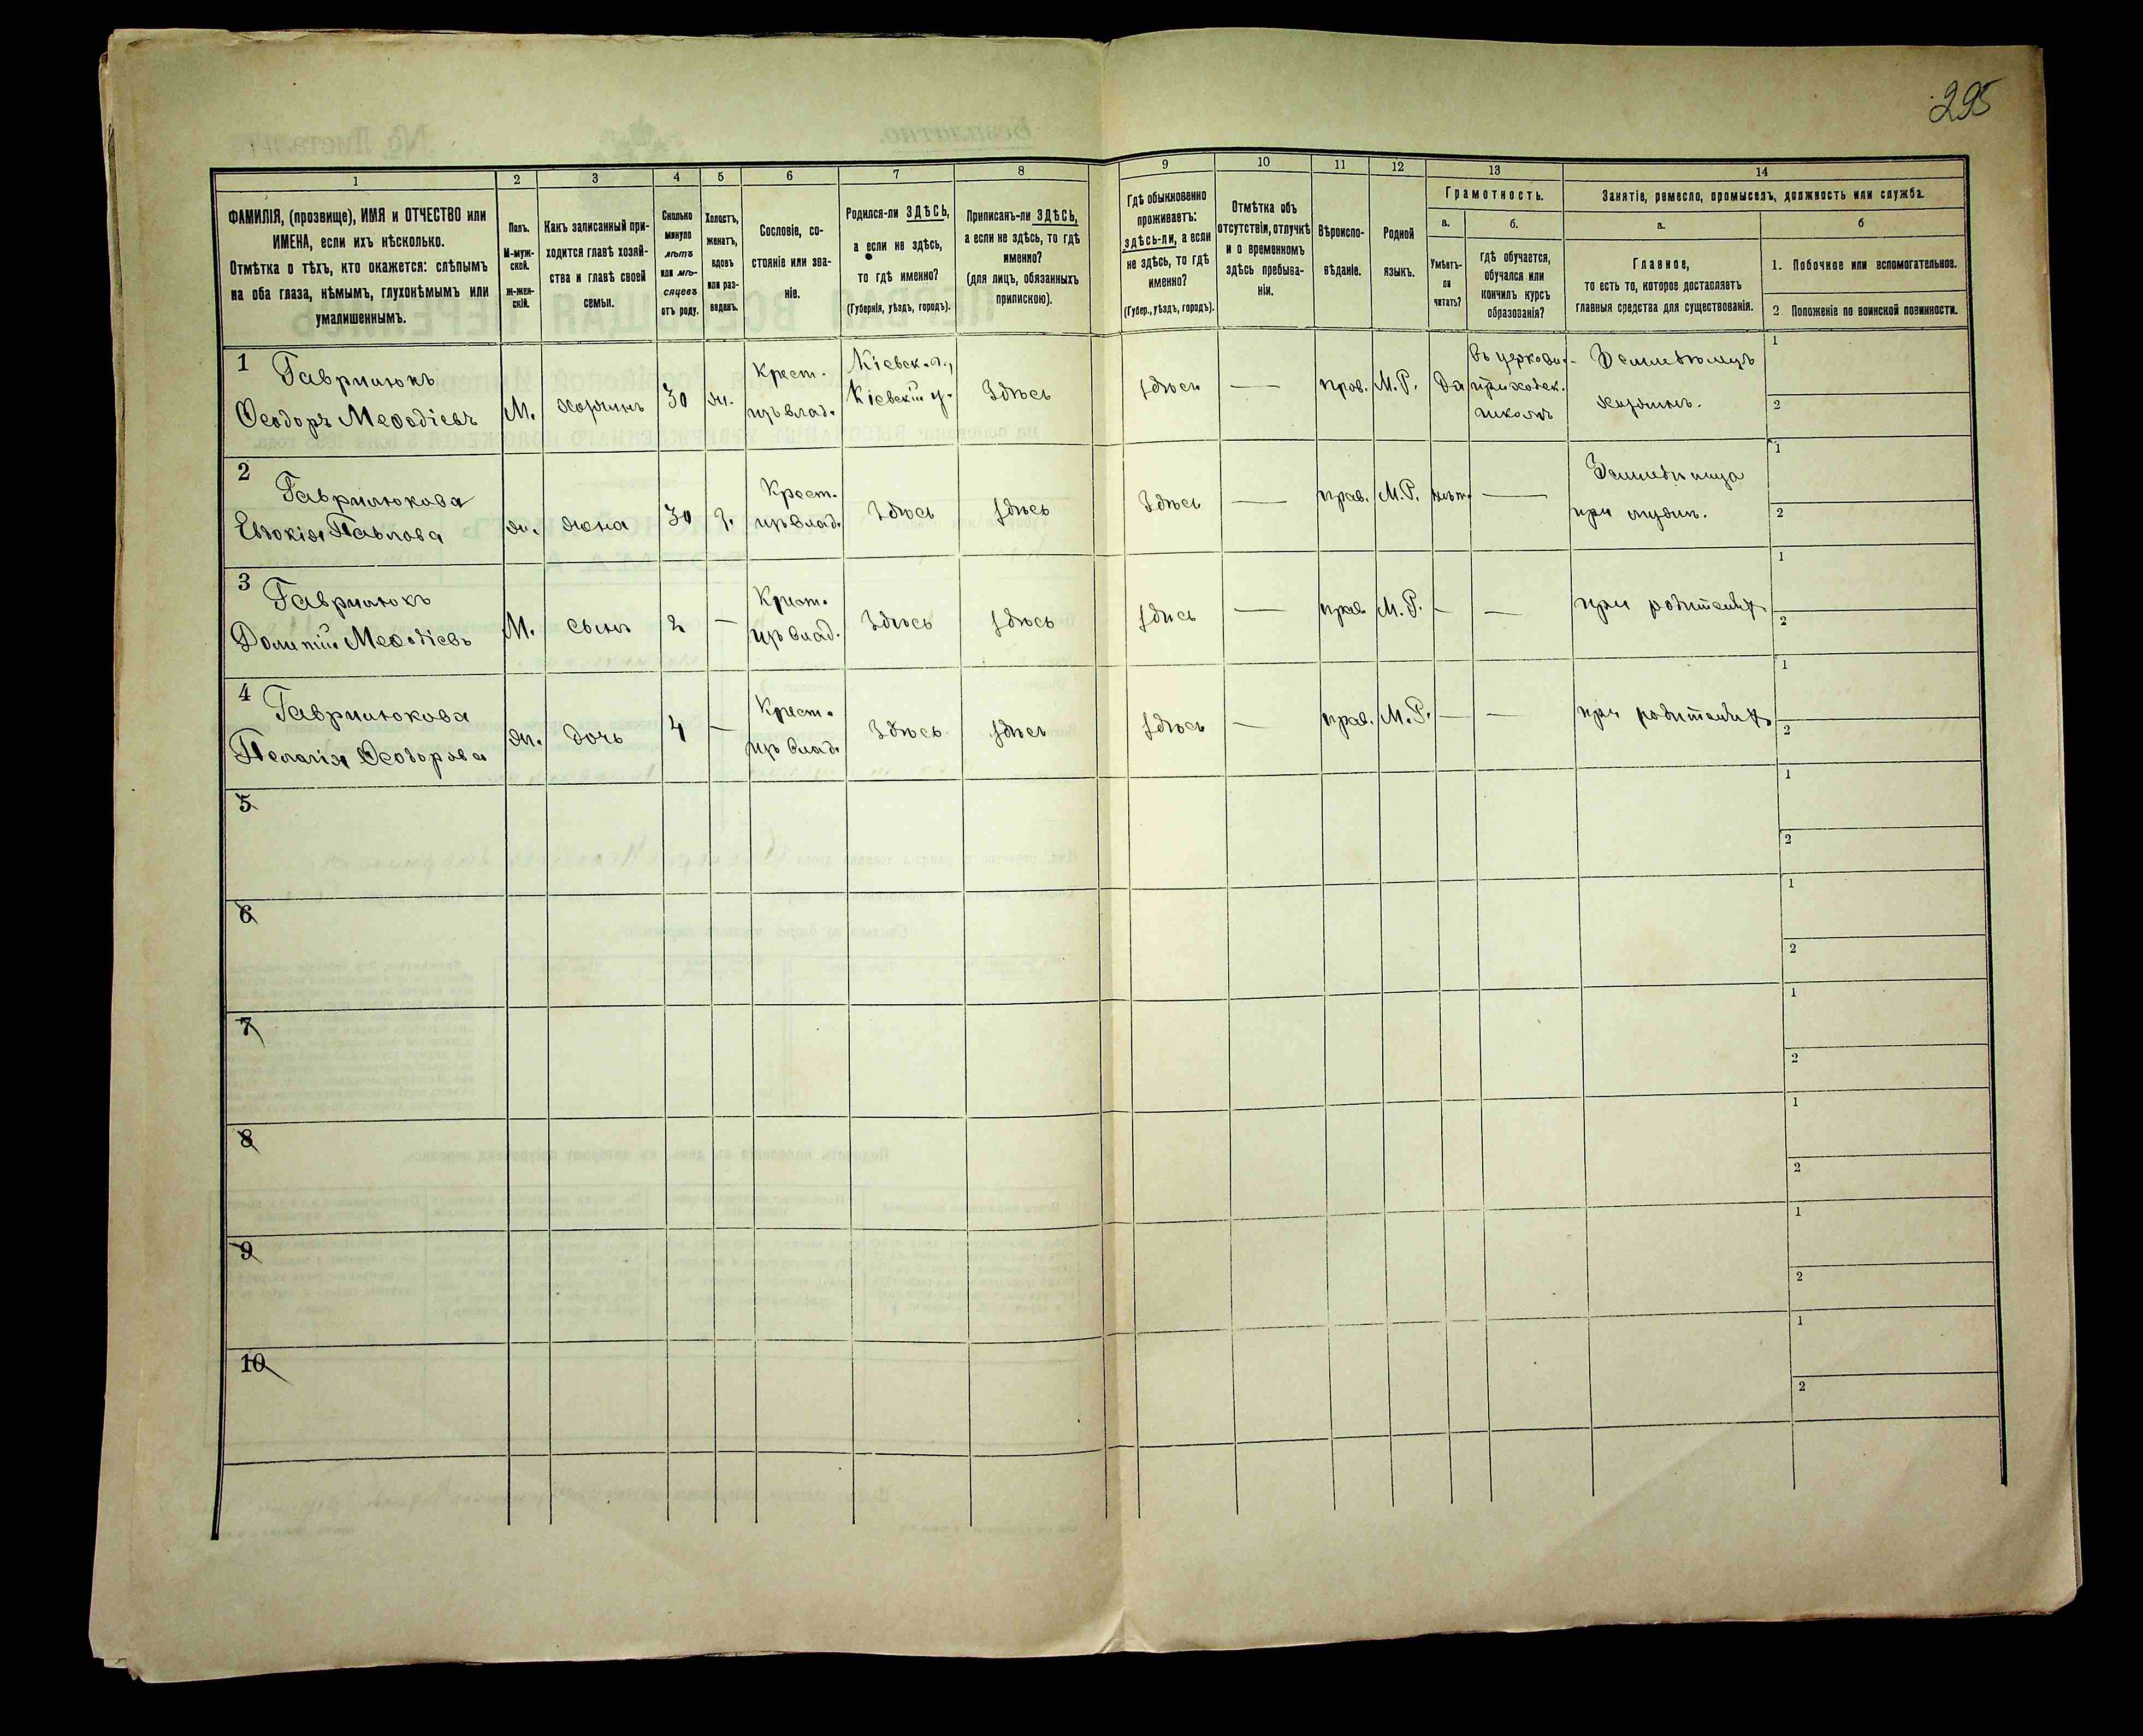 295
1
2
3
4
5
6
7
8
9
10
11
12
13
14
ФАМИЛІЯ, (прозвище), ИМЯ и ОТЧЕСТВО или
ИМЕНА, если ихъ нѣсколько.
Отмѣтка о тѣхъ, кто окажется: слѣпымъ
на оба глаза, нѣмымъ, глухонѣмымъ или
умалишеннымъ.
Полъ.
М-муж-
ской.
Ж-жен-
скій.
Какъ записанный при-
ходится главѣ хозяй-
ства и главѣ своей
семьи.
Сколько
минуло
лѣтъ
или мѣ-
сяцевъ
отъ роду.
Холостъ,
женатъ,
вдовъ
или раз-
веденъ.
Сословіе, со-
стояніе или зва-
ніе.
Родился-ли ЗДѢСЬ,
а если не здѣсь,
то гдѣ именно?
(Губернія, уѣздъ, городъ).
Приписанъ-ли ЗДѢСЬ,
а если не здѣсь, то гдѣ
именно?
(для лицъ, обязанныхъ
припискою).
Гдѣ обыкновенно
проживаетъ:
здѣсь-ли, а если
не здѣсь, то гдѣ
именно?
(Губер., уѣздъ, городъ).
Отмѣтка объ
отсутствіи, отлучкѣ
и о временномъ
здѣсь пребыва-
ніи.
Вѣроиспо-
вѣданіе.
Родной
языкъ.
Грамотность.
а.
б.
Умѣетъ-
ли
читать?
гдѣ обучается,
обучался или
кончилъ курсъ
образованія?
Занятіе, ремесло, промыселъ, должность или служба.
а.
б
Главное,
то есть то, которое доставляетъ
главныя средства для существованія.
1. Побочное или вспомогательное.
2 Положеніе по воинской повинности.
1 Гаврилюкъ
Ѳеодоръ Меѳодіевъ
М.
хозяинъ
30
ж.
Крест.
изъ влад.
Кіевск. г.,
Кіевскій у.
Здѣсь
здѣсь
—
прав.
М.Р.
Да
въ церковн.-
приходск.
школѣ
Земледѣлецъ
хозяинъ.
1
2
2 Гаврилюкова
Евдокія Павлова
ж.
жена
30
З.
Крест.
изъ влад.
Здѣсь
здѣсь
Здѣсь
—
прав.
М.Р.
нѣтъ
—
при мужѣ.
1
2
3 Гаврилюкъ
Меѳодіевъ
М.
сынъ
2
—
Крест.
изъ влад.
Здѣсь
здѣсь
здѣсь
—
прав.
М.Р.
—
—
при родителяхъ
1
2
4 Гаврилюкова
Пелагія Ѳеодорова
ж.
дочь
4
—
Крест.
изъ влад.
Здѣсь
здѣсь
здѣсь
—
прав.
М.Р.
—
—
при родителяхъ
1
2
5
1
2
6
1
2
7
1
2
8
1
2
9
1
2
10
1
2